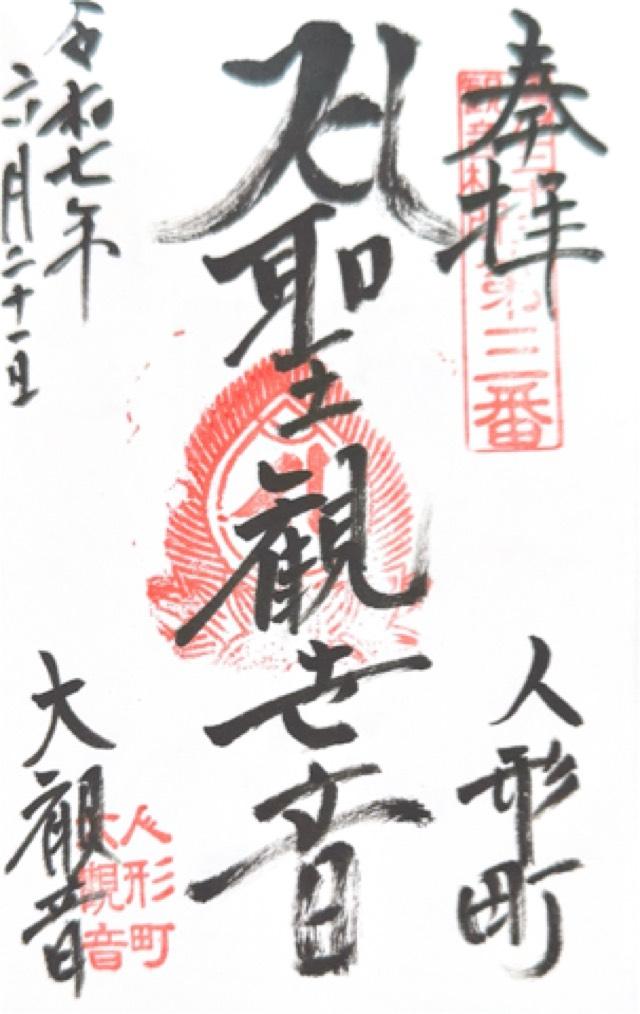 奉拝
第三番
人形町
聖観世音
令和七年
六月二十一日
大観音
人形町
大観音